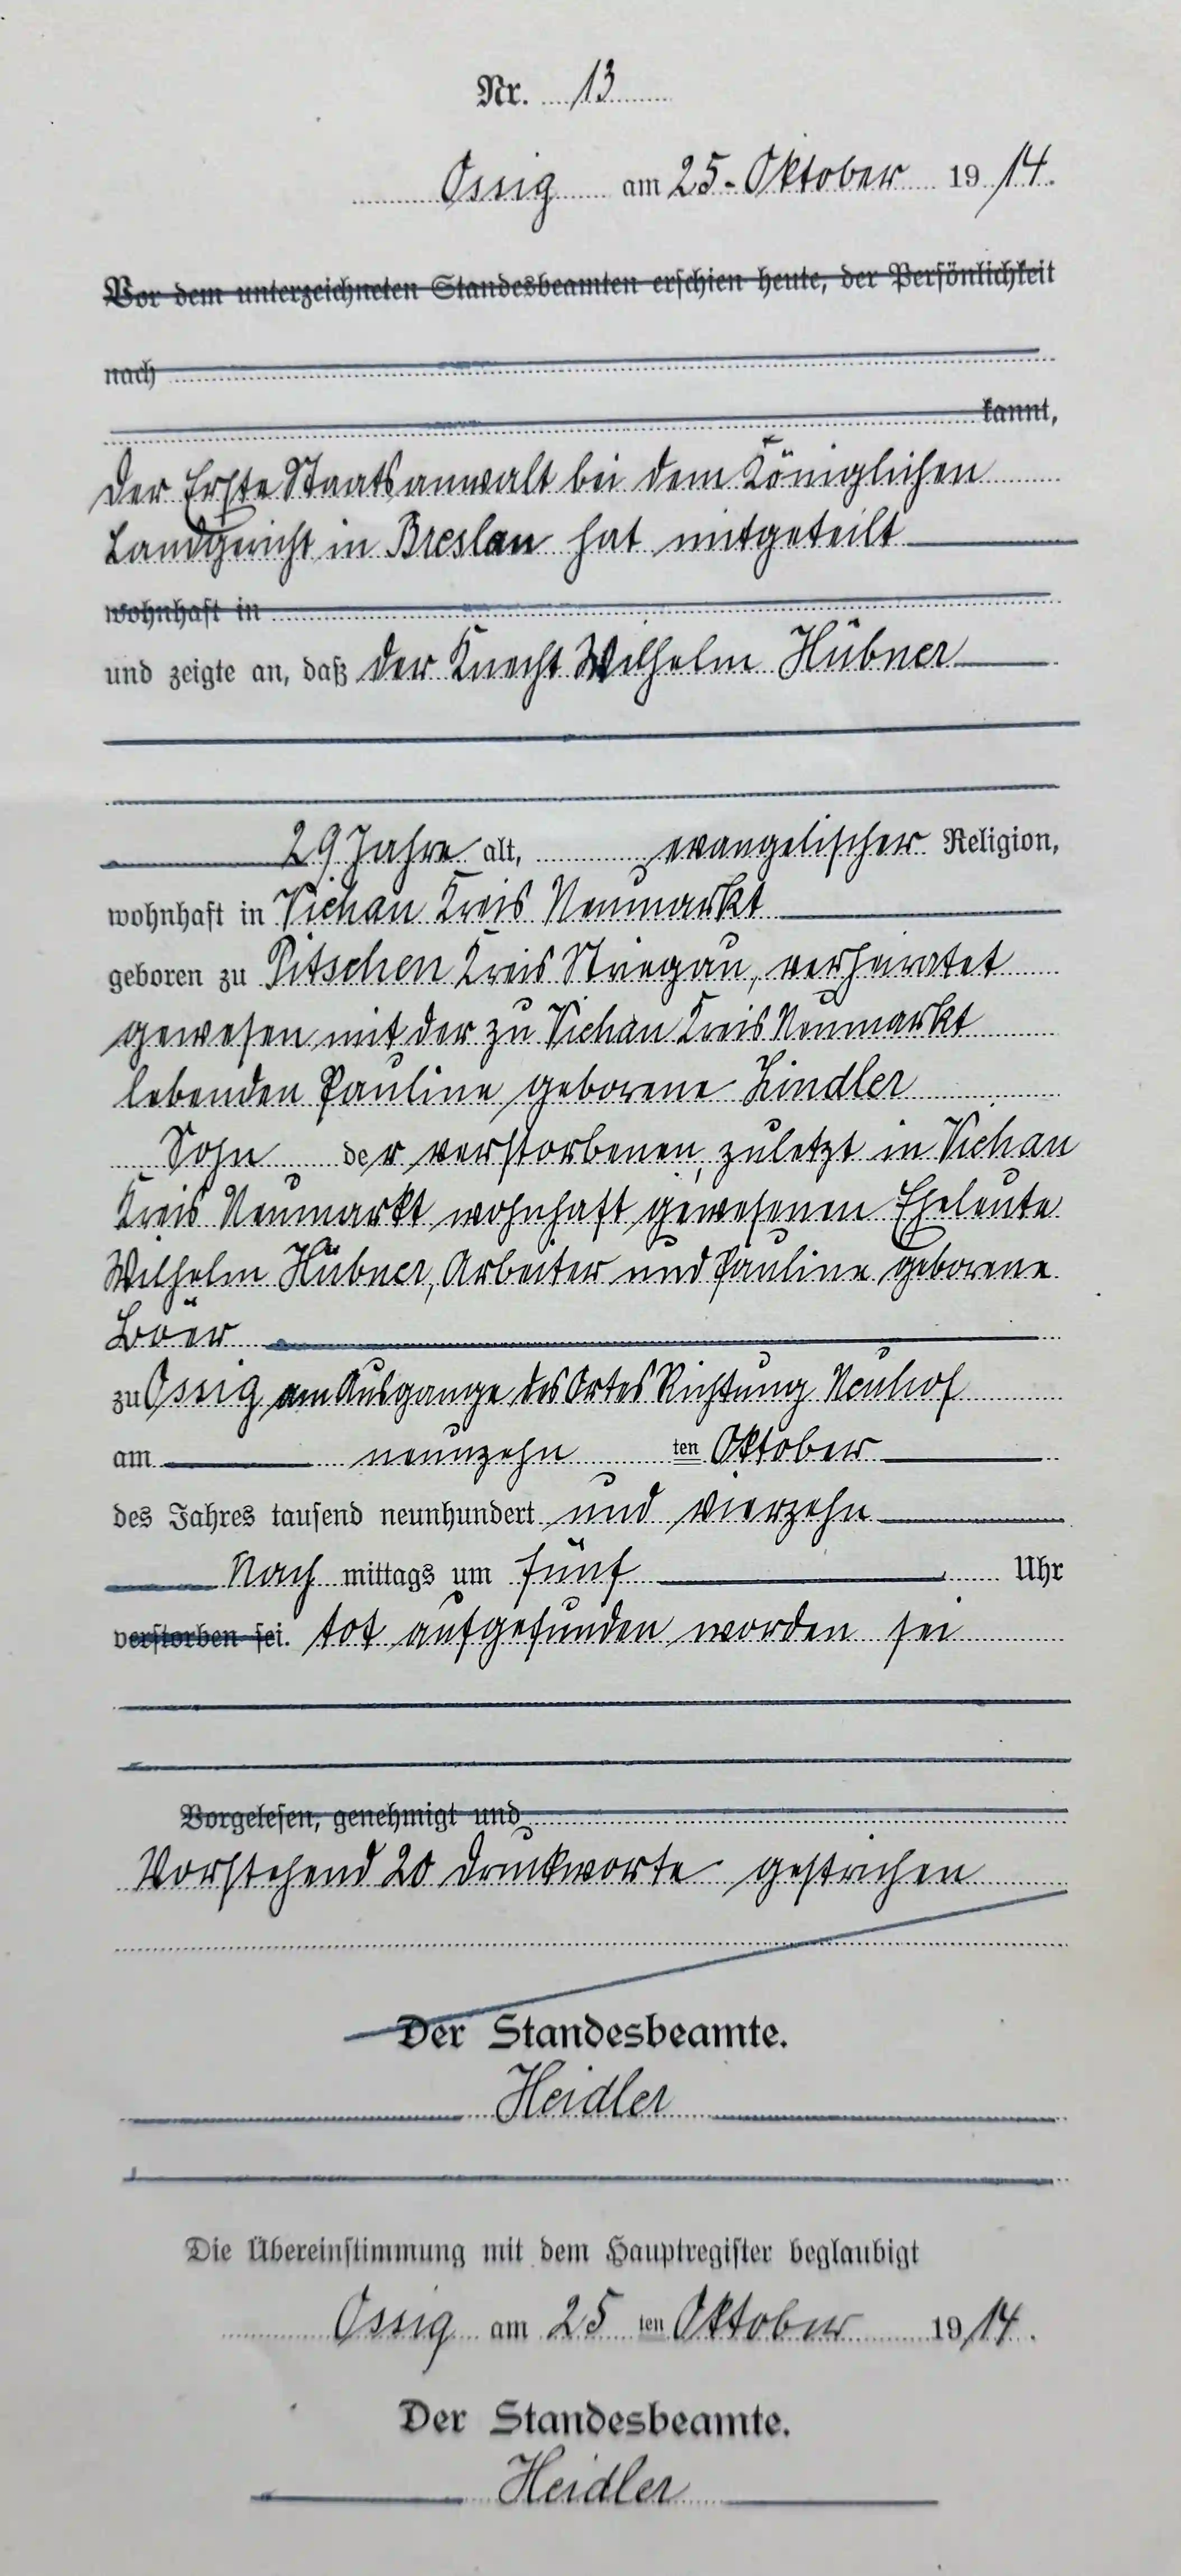 Nr. 13
Ossig am 25. Oktober 1914.
Vor dem unterzeichneten Standesbeamten erschien heute, der Persönlichkeit
nach
kannt,
Der Erste Staatsanwalt bei dem Königlichen
Landgericht in Breslau hat mitgeteilt
wohnhaft in
und zeigte an, daß der Knecht Wilhelm Hübner
29 Jahre alt, evangelischer Religion,
wohnhaft in Viehau Kreis Neumarkt
geboren zu Pitschen Kreis Striegau, verheiratet
gewesen mit der zu Viehau Kreis Neumarkt
lebenden Pauline geborene Lindler
Sohn der verstorbenen, zuletzt in Viehau
Kreis Neumarkt wohnhaft gewesenen Eheleute
Wilhelm Hübner, Arbeiter und Pauline geborene
Boër
zu Ossig am Ausgange des Ortes Richtung Neuhof
am neunzehn ten Oktober
des Jahres tausend neunhundert und vierzehn
Nach mittags um fünf Uhr
verstorben sei. tot aufgefunden worden sei
Vorgelesen, genehmigt und
Vorstehend 20 Druckworte gestrichen
Der Standesbeamte.
Heidler
Die Übereinstimmung mit dem Hauptregister beglaubigt
Ossig am 25 ten Oktober 1914.
Der Standesbeamte.
Heidler